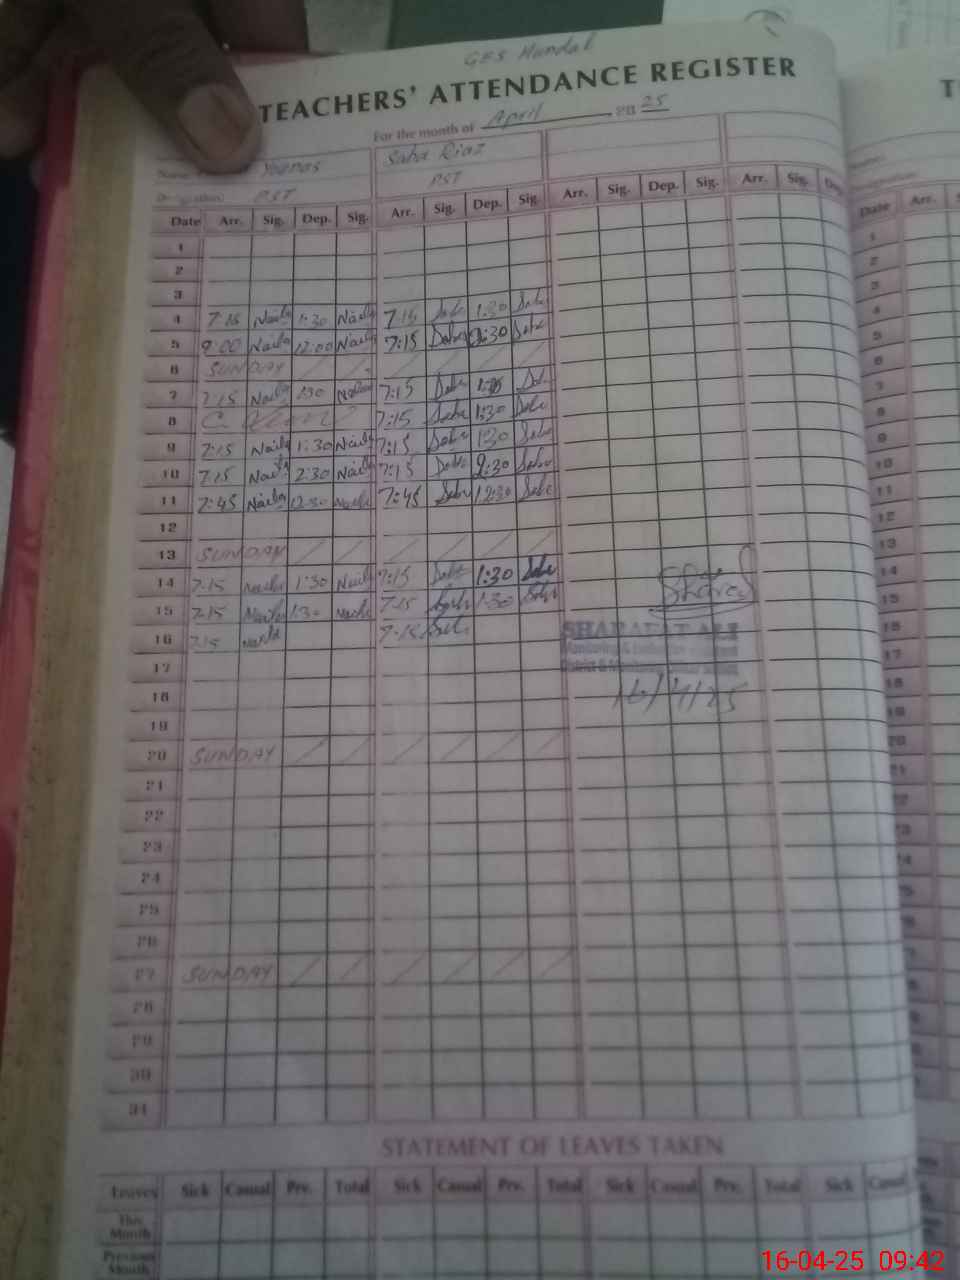 GES Mundal
TEACHERS' ATTENDANCE REGISTER
For the month of April 2025
Name Younas Saba Riaz
Designation: PST PST
Date Arr. Sig. Dep. Sig. Arr. Sig. Dep. Sig. Arr. Sig. Dep. Sig. Arr. Sig. Dep.
1
2
3
4 7:15 Naila 1:30 Naila 7:15 Saba 1:30 Saba
5 9:00 Naila 12:00 Naila 7:15 Saba 2:30 Saba
6 SUNDAY
7 7:15 Naila 1:30 Naila 7:15 Saba Saba
8 C. Leave 7:15 Saba 1:30 Saba
9 7:15 Naila 1:30 Naila 7:15 Saba 1:30 Saba
10 7:15 Naila 2:30 Naila 7:15 Saba 2:30 Saba
11 7:45 Naila 12:30 Naila 7:45 Saba 12:30 Saba
12
13 SUNDAY
14 7:15 Naila 1:30 Naila 7:15 Saba 1:30 Saba
15 7:15 Naila 1:30 Naila 7:15 Saba 1:30 Saba
16 7:15 Naila 7:15 Saba
Sharaf
SHARAFAT ALI
Monitoring & Evaluation Assistant
16/4/25
17
18
19
20 SUNDAY
21
22
23
24
25
26
27 SUNDAY
28
29
30
31
STATEMENT OF LEAVES TAKEN
Leaves Sick Casual Prv. Total Sick Casual Prv. Total Sick Casual Prv. Total Sick Casual
This Month
Previous Month
Date Arr.
1
2
3
4
5
6
7
8
9
10
11
12
13
14
15
16
17
18
19
20
21
22
23
24
25
16-04-25 09:42